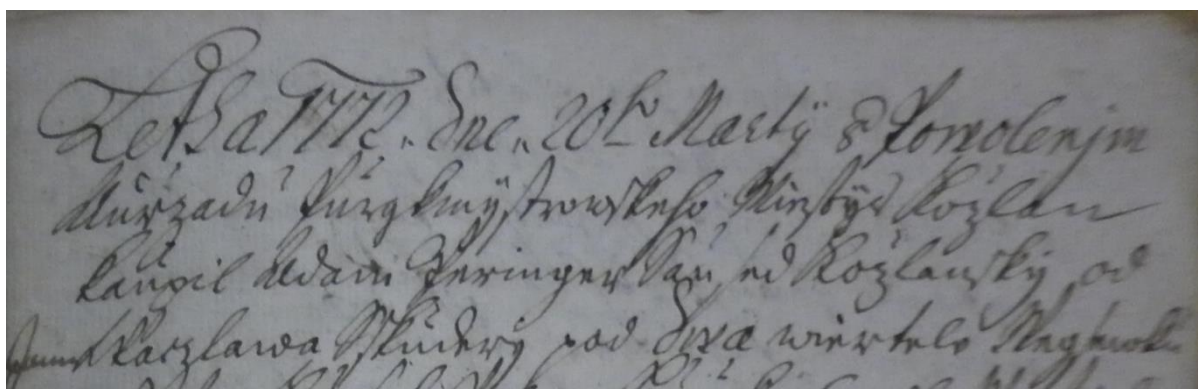 Letha 1772. Dne. 20ho Martÿ s Powolenjm
Auržadu Purgkmÿstrowskeho Miestÿs Kožlan
kaupil Adam Peringer Saused Kožlanskÿ od
Waczlawa Sskuderÿ pod Dwa wiertele